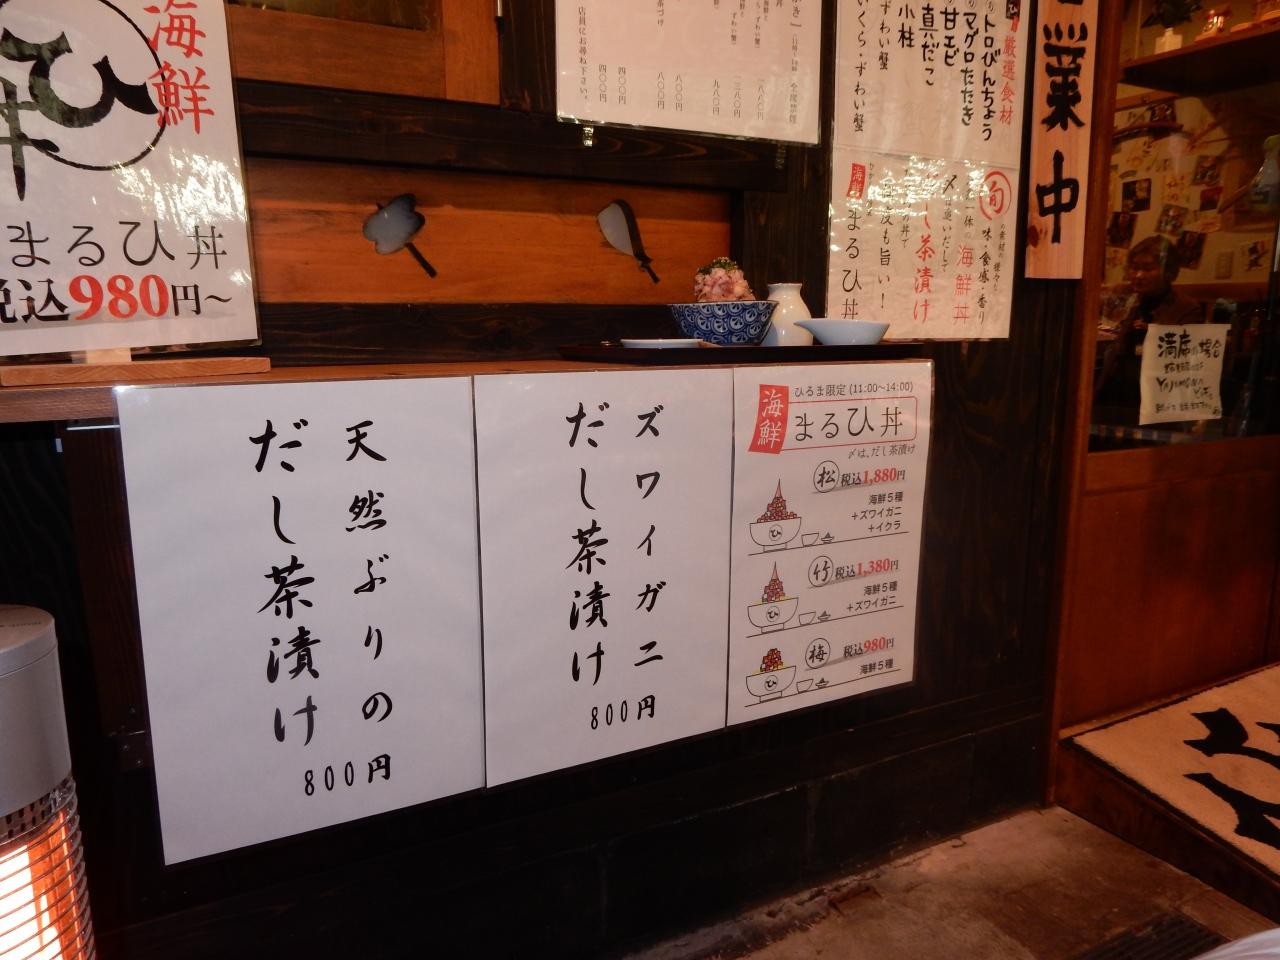 海鮮
まるひ丼
税込980円～
四〇〇円
四〇〇円
八〇〇円
八〇〇円
九八〇円
一三八〇円
一八八〇円
全席禁煙
店員にお尋ね下さい。
厳選食材
トロびんちょう
マグロたたき
甘エビ
真だこ
小柱
ずわい蟹
いくら・ずわい蟹
旬
味・食感・香り
海鮮丼
〆は追いだしで
だし茶漬け
二度も旨い！
海鮮
まるひ丼
業中
満席の場合
天然ぶりの
だし茶漬け
800円
ズワイガニ
だし茶漬け
800円
海鮮
ひるま限定 (11:00～14:00)
まるひ丼
〆は、だし茶漬け
松 税込1,880円
海鮮5種
+ズワイガニ
+イクラ
竹 税込1,380円
海鮮5種
+ズワイガニ
梅 税込980円
海鮮5種